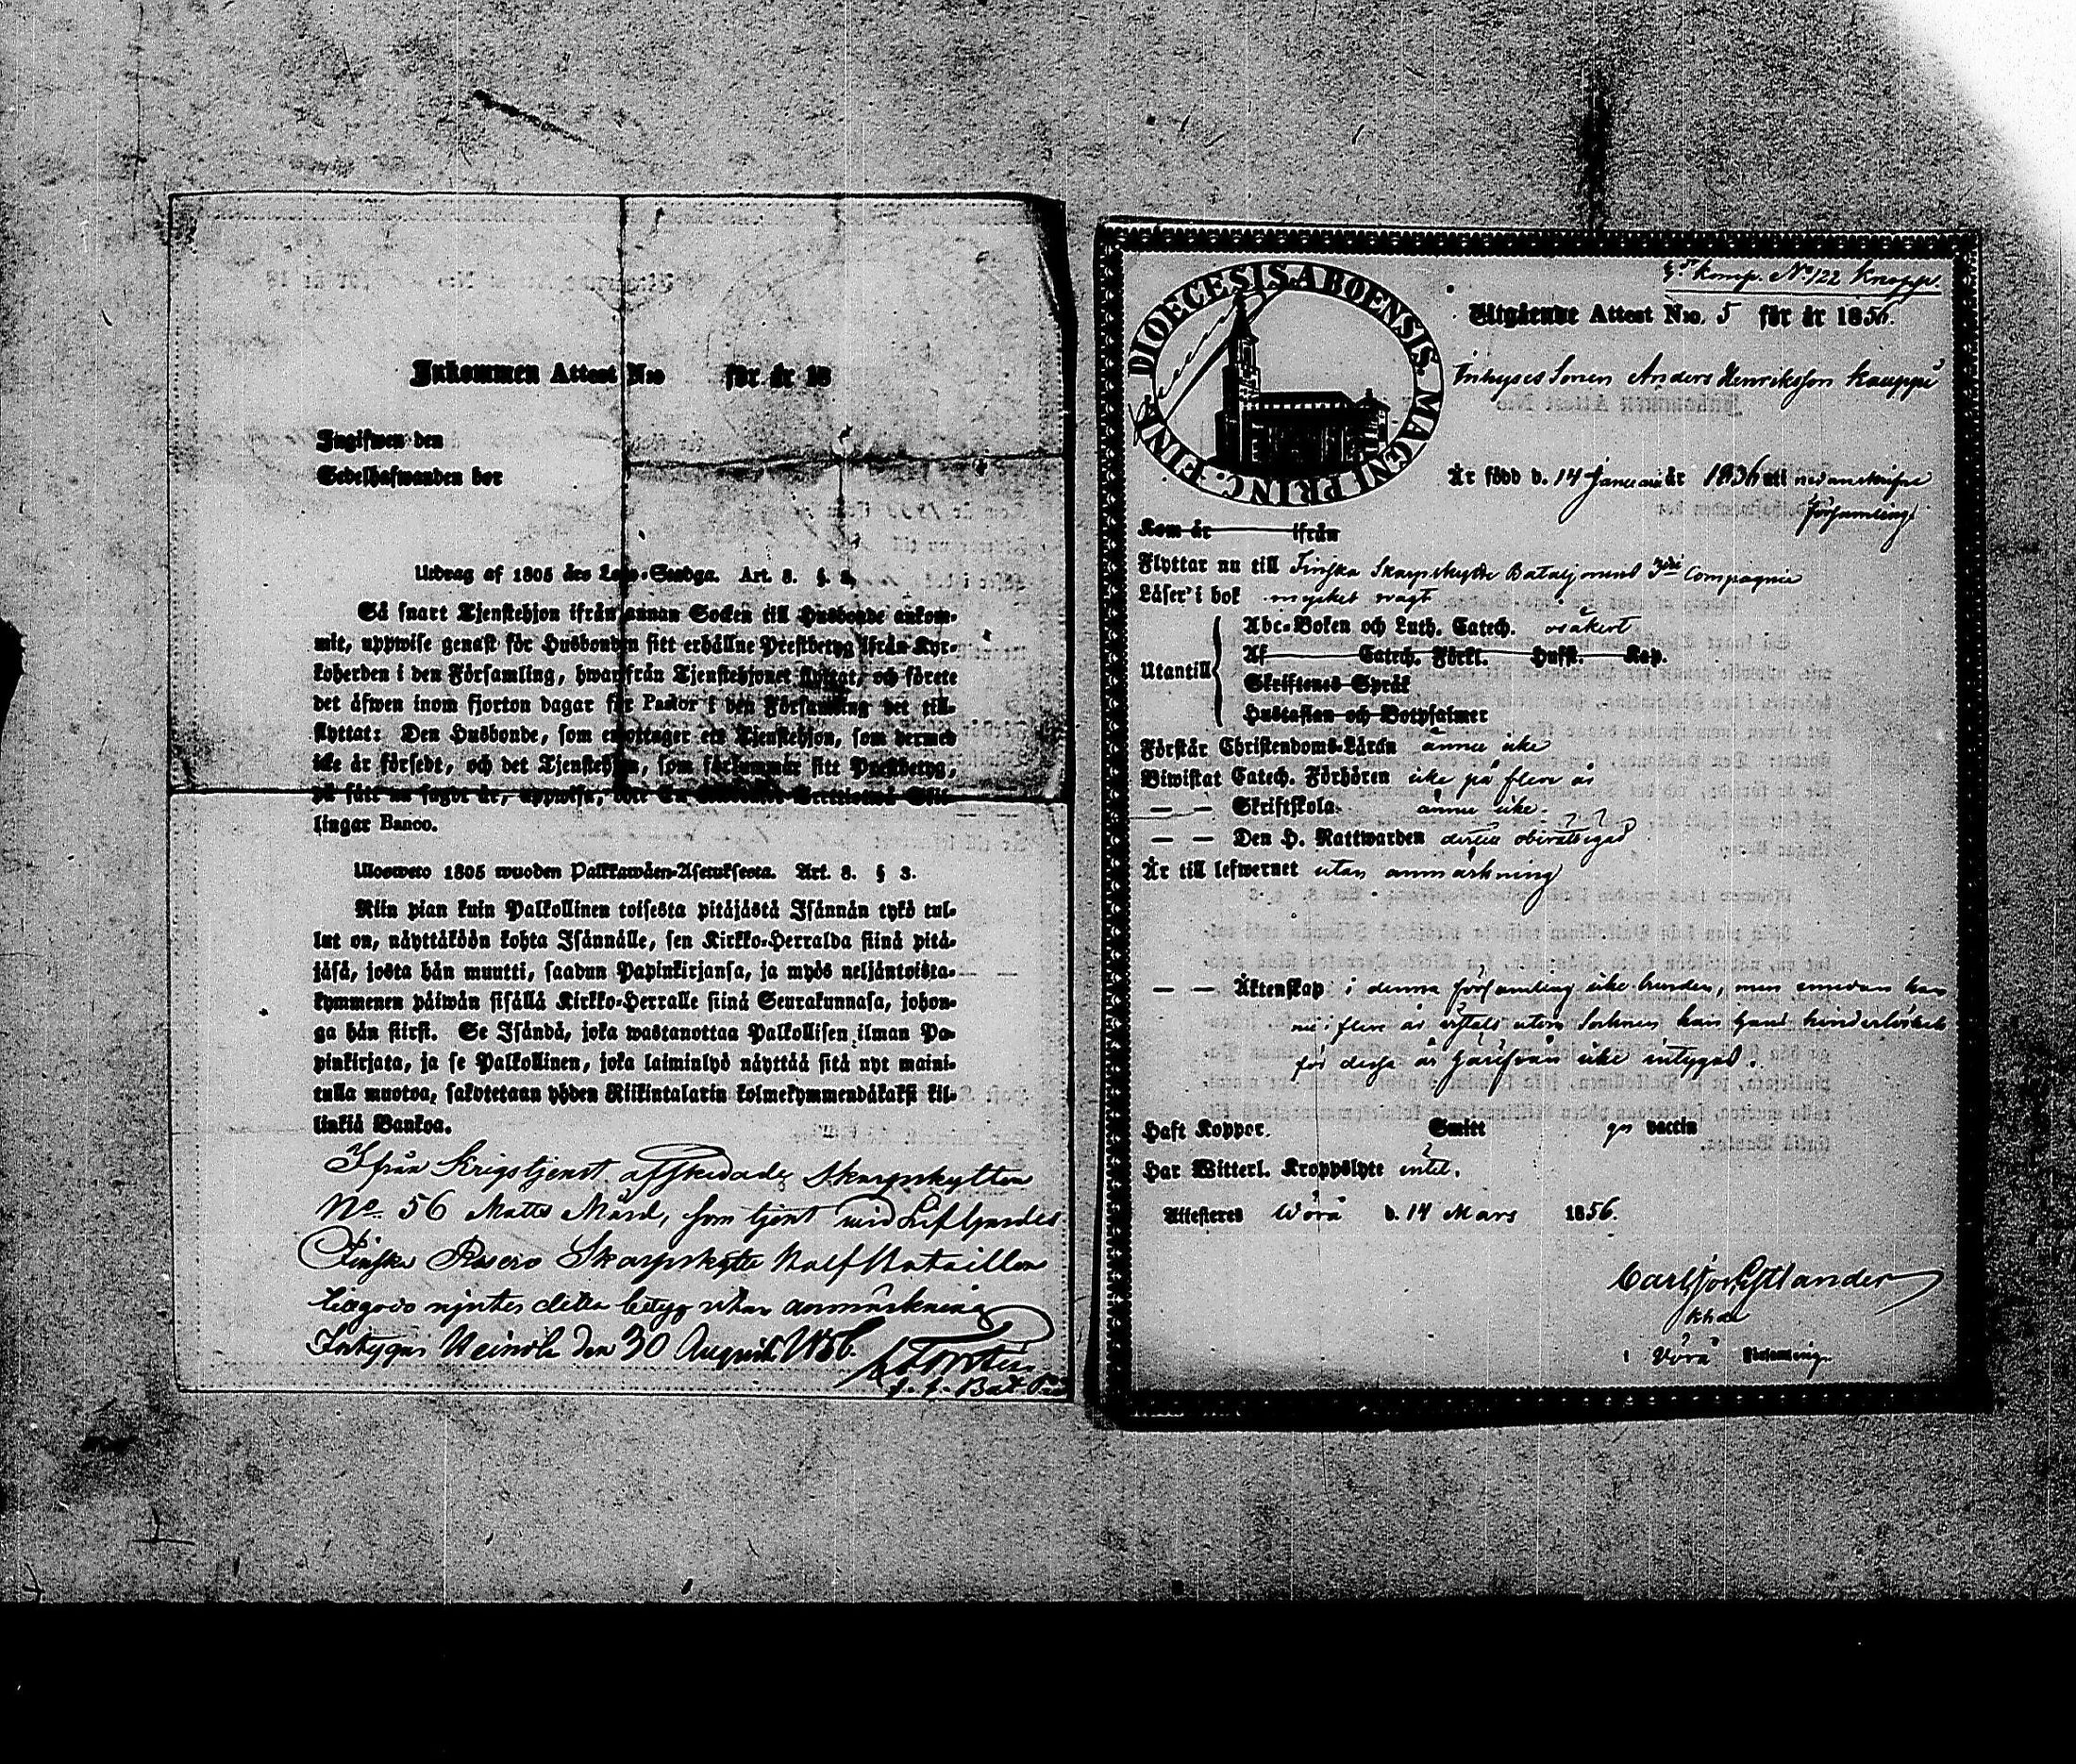 Inkommen Attest N:o för år 18
Ingifwen den
Sedelhafwanden bor
Utdrag af 1805 års Lego-Stadga. Art. 8. §.
Så snart Tjenstehjon ifrån annan Socken till Husbonde ankom-
mit, uppwise genast för Husbonden sitt erhållne Prestbetyg ifrån Kyr-
koherden i den Församling, hwarifrån Tjenstehjonet flyttat, och förete
det äfwen inom fjorton dagar för Pastor i den Församling det till-
flyttat: Den Husbonde, som emottager ett Tjenstehjon, som dermed
icke är försedt, och det Tjenstehjon, som försummar sitt Prestbetyg,
på sätt nu sagdt är, uppwisa,
lingar Banco.
Ulosweto 1805 wuoden Palkkawäen-Asetuksesta. Art. 8. § 3.
Niin pian kuin Palkollinen toisesta pitäjästä Isännän tykö tul-
lut on, näyttäköön kohta Isännälle, sen Kirkko-Herralda siinä pitä-
jäsä, josta hän muutti, saadun Papinkirjansa, ja myös neljäntoista-
kymmenen päiwän sisällä Kirkko-Herralle siinä Seurakunnasa, johon-
ga hän siirsi. Se Isändä, joka wastanottaa Palkollisen ilman Pa-
pinkirjata, ja se Palkollinen, joka laiminlyö näyttää sitä nyt maini-
tulla muotoa, sakotetaan yhden Riikintalarin kolmekymmendäkaksi kil-
linkiä Bankoa.
Ifrån Krigstjenst afskedade Skarpskytten
No 56 Matts Mård, som tjent wid Lifgardes
Finska Reserv Skarpskytte Half Bataillon
njuter detta betyg utan anmärkning
Intygar Heinola den 30 Augusti 1856.
Bat.
komp. No 122 Knapp.
Utgående Attest N:o. 5 för år 1856.
Inhyses Sonen Anders Henriksson Kauppi
Är född d. 14 Januarii år 1836 uti nedanskrifne
församling
Kom år ifrån
Flyttar nu till Finska Skarpskytte Bataljonens 3dje Compagnie
Läser i bok mycket swagt
Abc-Boken och Luth. Catech. osäkert
Utantill Af Catech. Förkl. Hufst. Kap.
Skriftenes Språk
Hustaflan och Botpsalmer
Förstår Christendoms-Läran ännu icke
Biwistat Catech. Förhören icke på flere år
— — Skriftskola. ännu icke.
— — Den H. Nattwarden dertill oberättigad
Är till lefwernet utan anmärkning
— — Äktenskap i denna församling icke bunden, men emedan han
nu i flere år wistats utom Socknen kan hans hinderlöshet
för dessa år härifrån icke intygas.
Haft Koppor. Smitt gm vaccin
Har Witterl. Kroppslyte intet.
Attesteras Wörå d. 14 Mars 1856.
Carl Estlander
Khde
i Vörå Församling.
DIOECESIS ABOENSIS. MAGNI PRINC. FINL